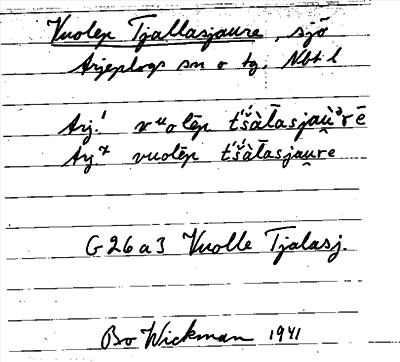 Vuolep Tjallasjaure, sjö
Arjeplogs sn o tg. Nbt l
Arj.¹ vuolēp t́šàl̄asjau̯ᵊrē
Arj.⁷ vuolēp t́šàl̄asjau̯re
G 26 a 3 Vuolle Tjalasj.
Bo Wickman 1941